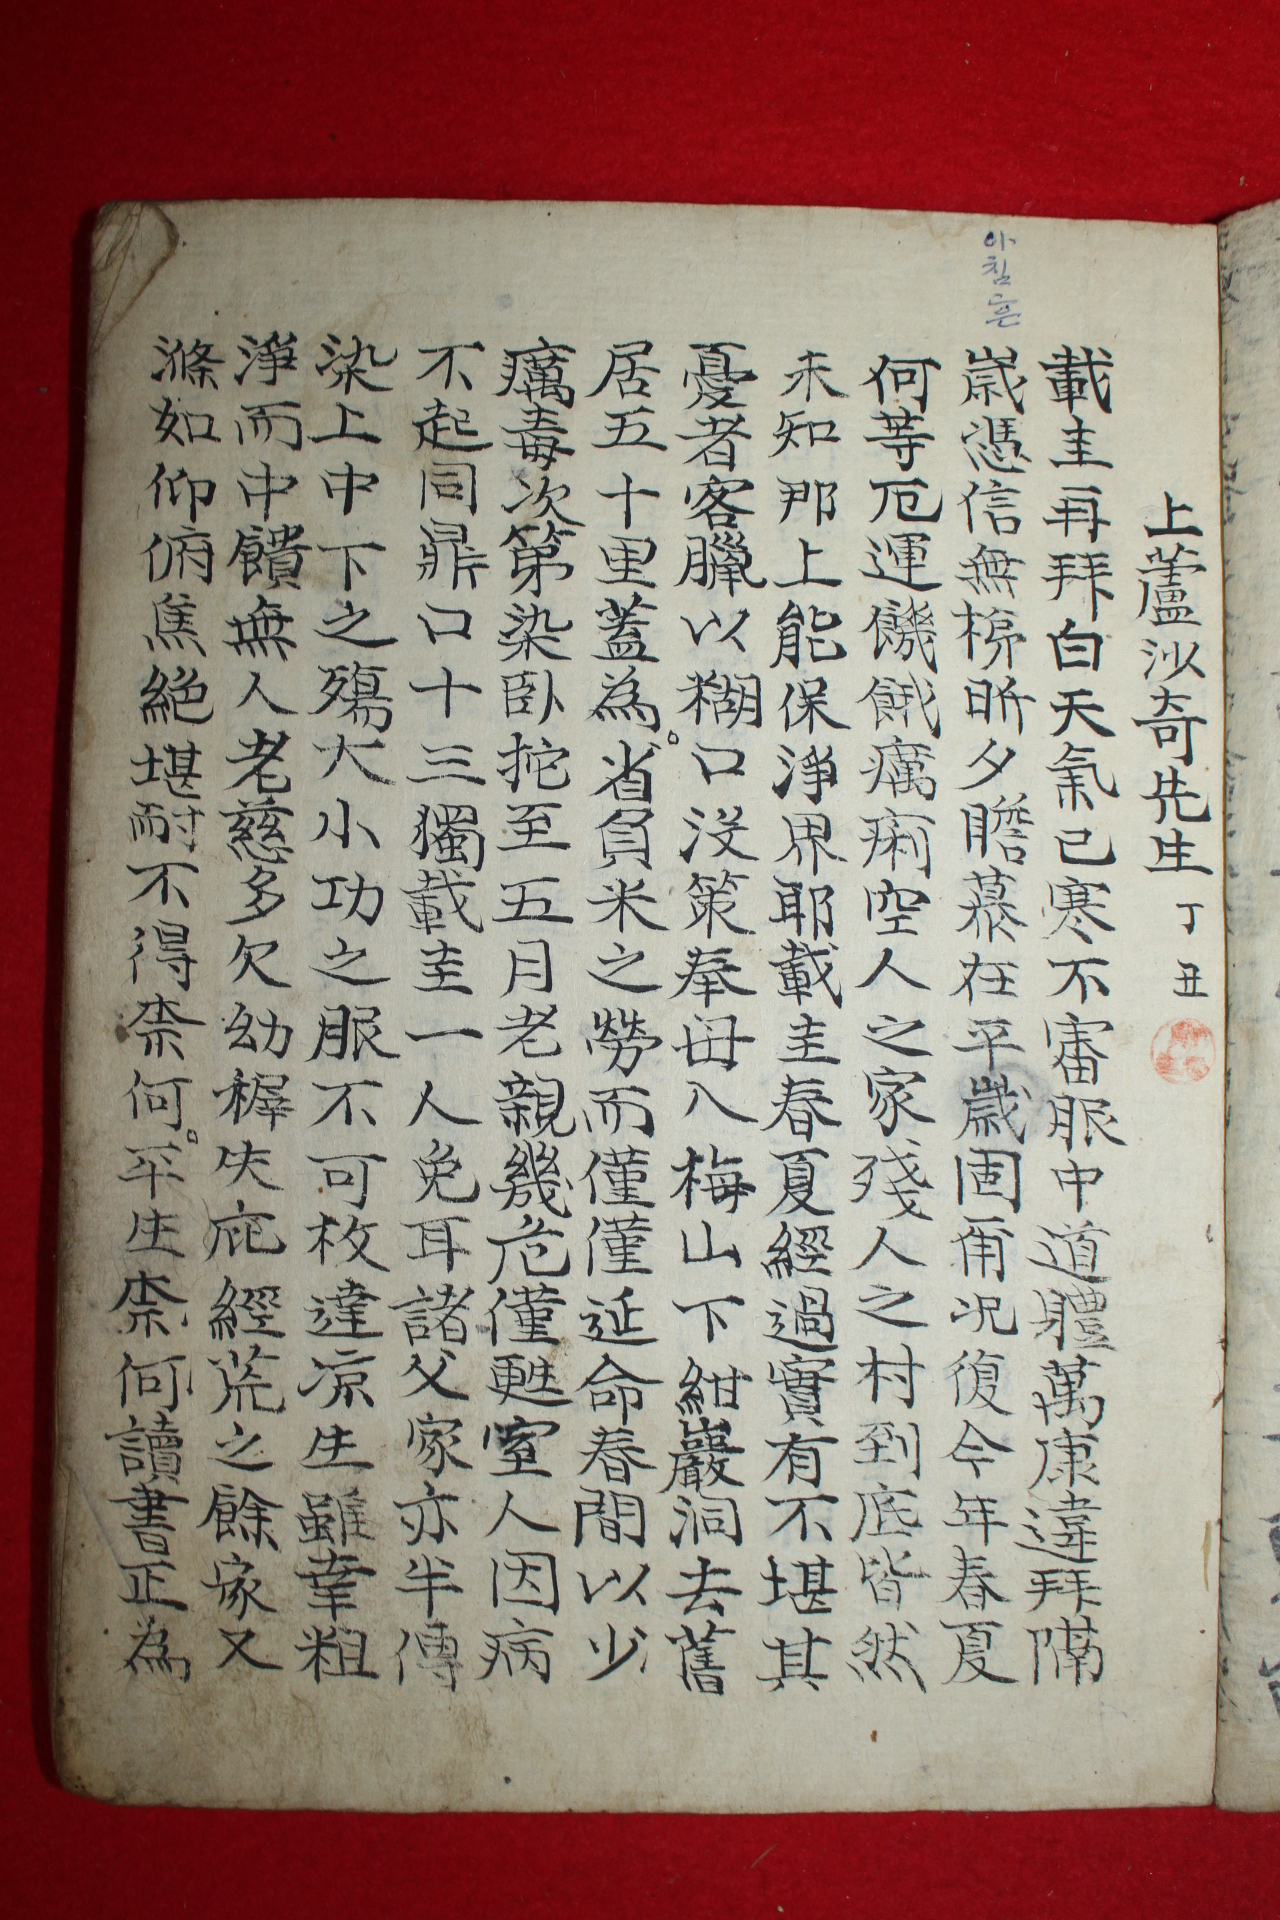 上蘆沙奇先生 丁丑
載圭再拜白天氣已寒不審服中道體萬康違拜隔
아침흔
歲憑信無梯昕夕瞻慕在平歲固甭况復今年春夏
何等厄運饑餓癘痢空人之家殘人之村到底皆然
未知那上能保淨界耶載圭春夏經過實有不堪其
憂者客臘以糊口没策奉母入梅山下紺巖洞去舊
居五十里蓋為省負米之勞而僅僅延命春間以少
癘毒次第染卧拕至五月老親幾危僅甦室人因病
不起同鼎口十三獨載圭一人免耳諸父家亦半傳
染上中下之殤大小功之服不可枚達凉生雖幸粗
淨而中饋無人老慈多欠幼穉失庇經荒之餘家又
滌如仰俯焦絶堪耐不得柰何平生柰何讀書正為